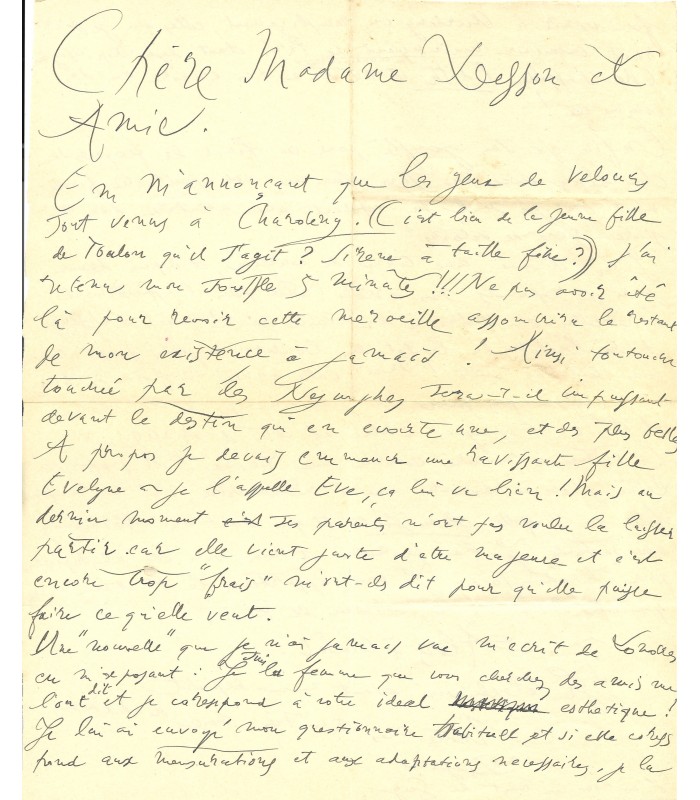 Chère Madame et
Amie.
En m'annoncant que les yeux de velours
sont venus à (C'est bien de la jeune fille
de Toulon qu'il s'agit? Sirène à taille fine?) j'ai
retenu mon souffle 5 minutes!!! Ne pas avoir été
là pour revoir cette merveille assombrira le restant
de mon existence à jamais! Ainsi
par les Nymphes sera-t-il impuissant
devant le destin qui en une, et des plus belles
A propos je devais emmener une ravissante fille
Evelyne or je l'appelle Eve, ça lui va bien! Mais au
dernier moment ses parents n'ont pas voulu la laisser
partir car elle vient juste d'être majeure et c'est
encore trop "frais" m'ont-ils dit pour qu'elle puisse
faire ce qu'elle veut.
Une "nouvelle" que je n'ai jamais vue m'écrit de Londres
en m'exposant: "Je suis la femme que vous cherchez des amis me
l'ont dit et je correspond à votre ideal esthetique!
Je lui ai envoyé mon questionnaire habituel et si elle corres
pond aux mensurations et aux adaptations necessaires, je la